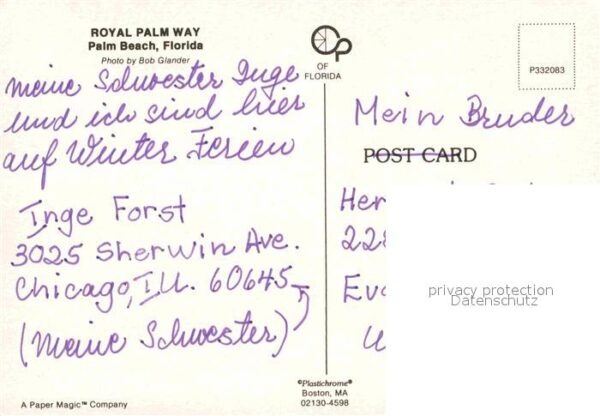 ROYAL PALM WAY
Palm Beach, Florida
Photo by Bob Glander
meine Schwester Inge
und ich sind hier
auf Winter Ferien
Inge Forst
3025 Sherwin Ave.
Chicago, Ill. 60645
(meine Schwester)
A Paper Magic™ Company
OF
FLORIDA
P332083
Mein Bruder
POST CARD
Her
22
privacy protection
Datenschutz
©Plastichrome®
Boston, MA
02130-4598